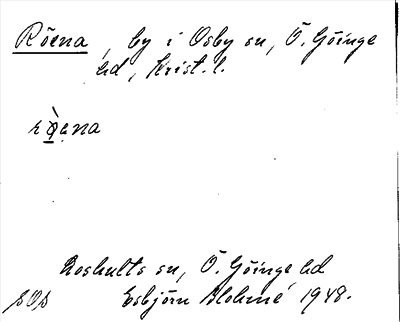 Röena, by i Osby sn, Ö. Göinge
hd, Krist. l.
rö̀ena
Loshults sn, Ö. Göinge hd
sOs Esbjörn Blohmé 1948.